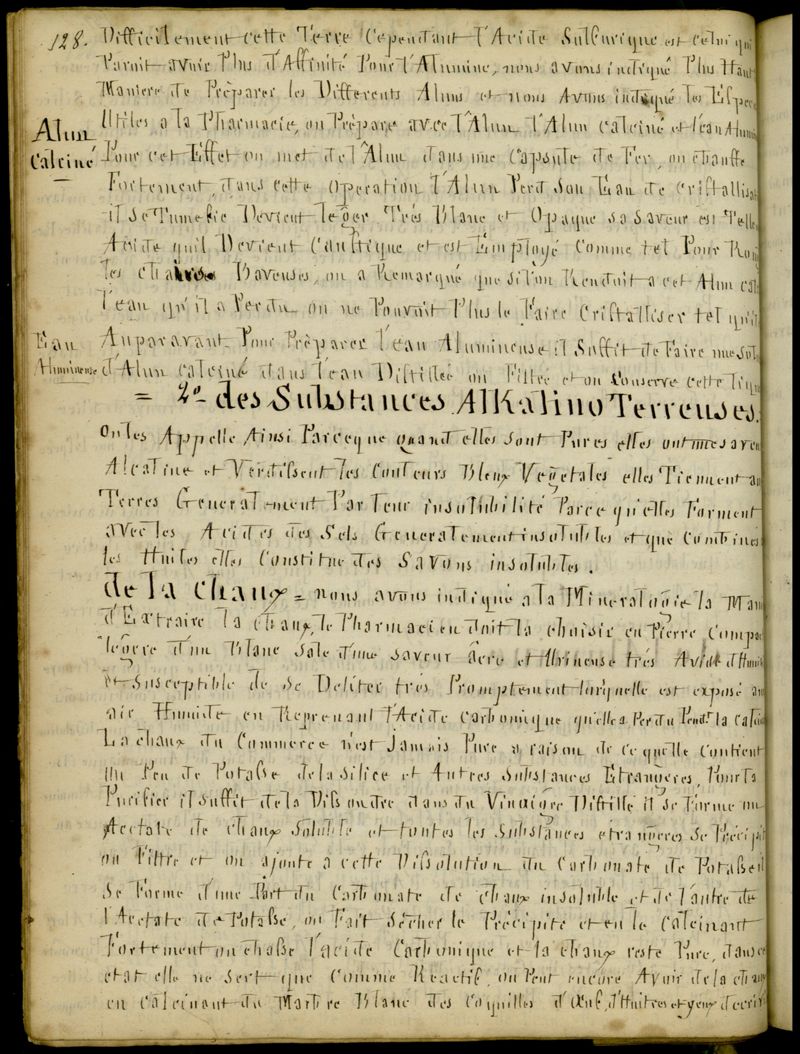 128. Difficilement cette Terre Cependant l'Acide Sulfurique est celui qui
Parait avoir Plus d'Affinité Pour l'Alumine, nous avons indiqué Plus Haut
Maniere de Préparer les Differents Aluns et nous Avons indiqué les Espec
Utiles a la Pharmacie, on Prépare avec l'Alun l'Alun Calciné et l'eau Alumin
Alun
Calciné
Pour cet Effet on met de l'Alun dans une Capsule de Fer, on chauffe
Fortement, dans cette Operation l'Alun Perd Son Eau de Cristallisa
il Se Tumefie Devient leger Tres Blanc et Opaque Sa Saveur est Telle
Acide qu'il Devient Caustique et est Employé Comme tel Pour Ron
les chairs Baveuses, on a Remarqué que si l'on Rendait a cet Alun cal
l'eau qu'il a Perdu on ne Pouvait Plus le Faire Cristalliser tel qu'il
Eau
Alumineuse
Auparavant. Pour Préparer l'eau Alumineuse il Suffit de Faire une Sol
d'Alun Calciné dans l'eau Distillée on Filtre et on Conserve cette liqu
= 2º des Substances Alkalino Terreuses.
On les Appelle Ainsi Parceque quand elles sont Pures elles ont une saveur
Alcaline et Verdissent les Couleurs Bleux Vegetales elles Tiennent au
Terres Generalement Par leur insolubilité Parce qu'elles Forment
avec les Acides des Sels Generalement insolubles et que Combinés
les Huiles elles Constitue des Savons insolubles.
de la Chaux = nous avons indiqué a la Mineralogie la Man
d'Extraire la chaux, le Pharmacien doit la choisir en Pierre Compac
legere d'un Blanc Sale d'une Saveur âcre et Urineuse trés Avide d'Humi
et Susceptible de Se Deliter trés Promptement lorsquelle est exposé au
air Humide en Reprenant l'Acide Carbonique qu'elle a Perdu Pendt la Calci
La chaux du Commerce n'est Jamais Pure a raison de ce quelle Contient
Un Peu de Potasse de la Silice et Autres Substances Etrangeres, Pour la
Purifier il Suffit de la Dissoudre dans du Vinaigre Distillé il Se Forme un
Acetate de chaux Soluble et toutes les Substances etrangeres Se Précipit
on Filtre et on ajoute a cette Dissolution du Carbonate de Potasse il
Se Forme d'une Part du Carbonate de chaux insoluble et de l'autre de
l'Acetate de Potasse, on Fait Sécher le Précipité et en le Calcinant
Fortement on chasse l'acide Carbonique et la chaux reste Pure, dans ce
etat elle ne Sert que Comme Reactif, on Peut encore Avoir de la chaux
en Calcinant du Marbre Blanc des Coquilles d'Œuf, d'Huitres et yeux d'ecrev